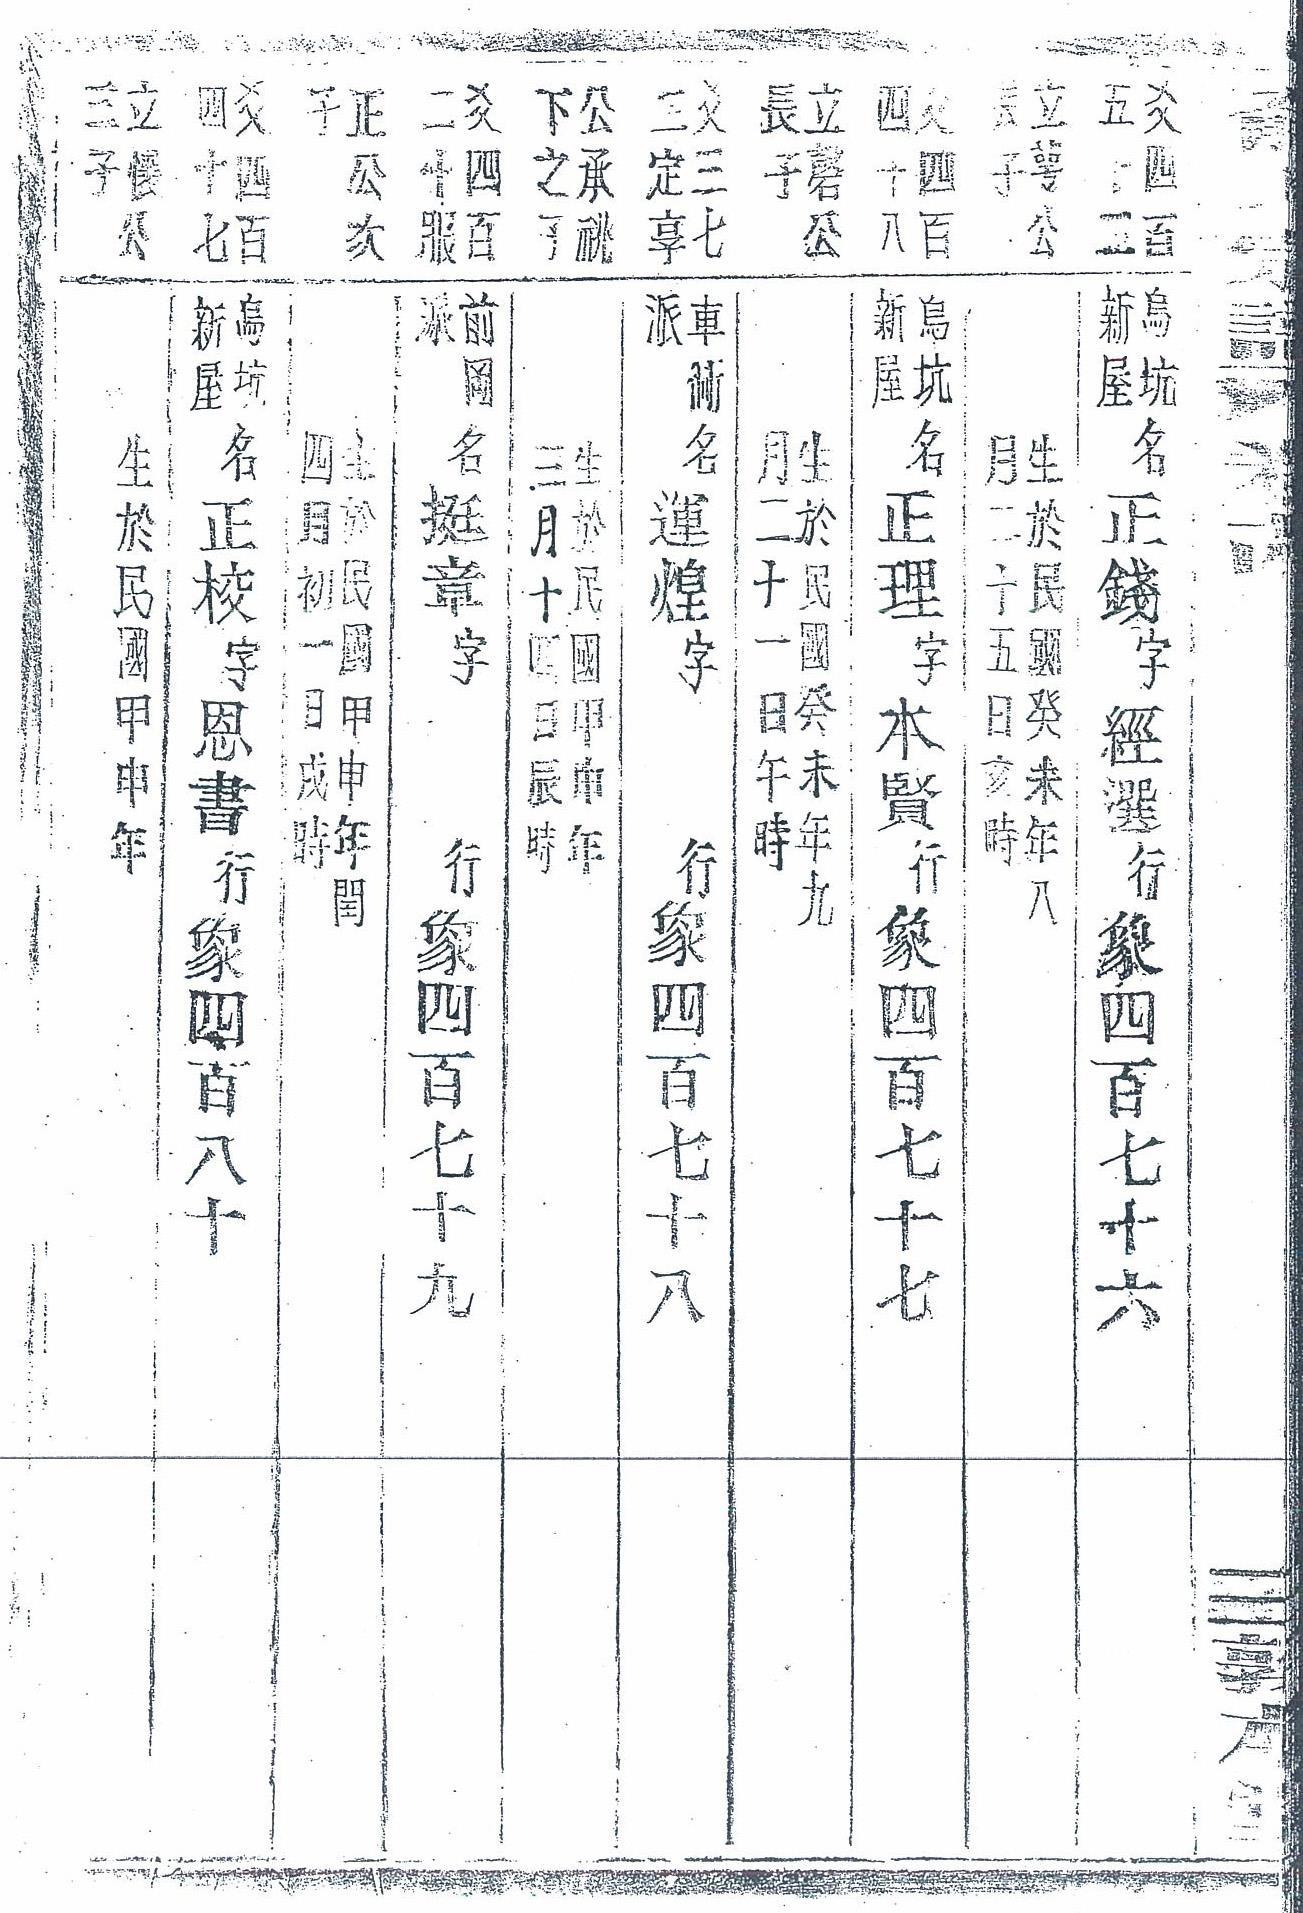 爻四百
五十三
烏坑
新屋
名正錢字經選行象四百七十六
立萼公
長子
生於民國癸未年八
月二十五日亥時
爻四百
四十八
烏坑
新屋
名正理字本賢行象四百七十七
立磬公
長子
生於民國癸未年九
月二十一日午時
爻三七
三定享
車衕
派
名運煌字 行象四百七十八
公承祧
下之丁
生於民國甲申年
三月十四日辰時
爻四百
二十服
前岡
派
名挺章字 行象四百七十九
正公次
子
生於民國甲申年閏
四月初一日戌時
爻四百
四十七
烏坑
新屋
名正校字恩書行象四百八十
立 公
三子
生於民國甲申年